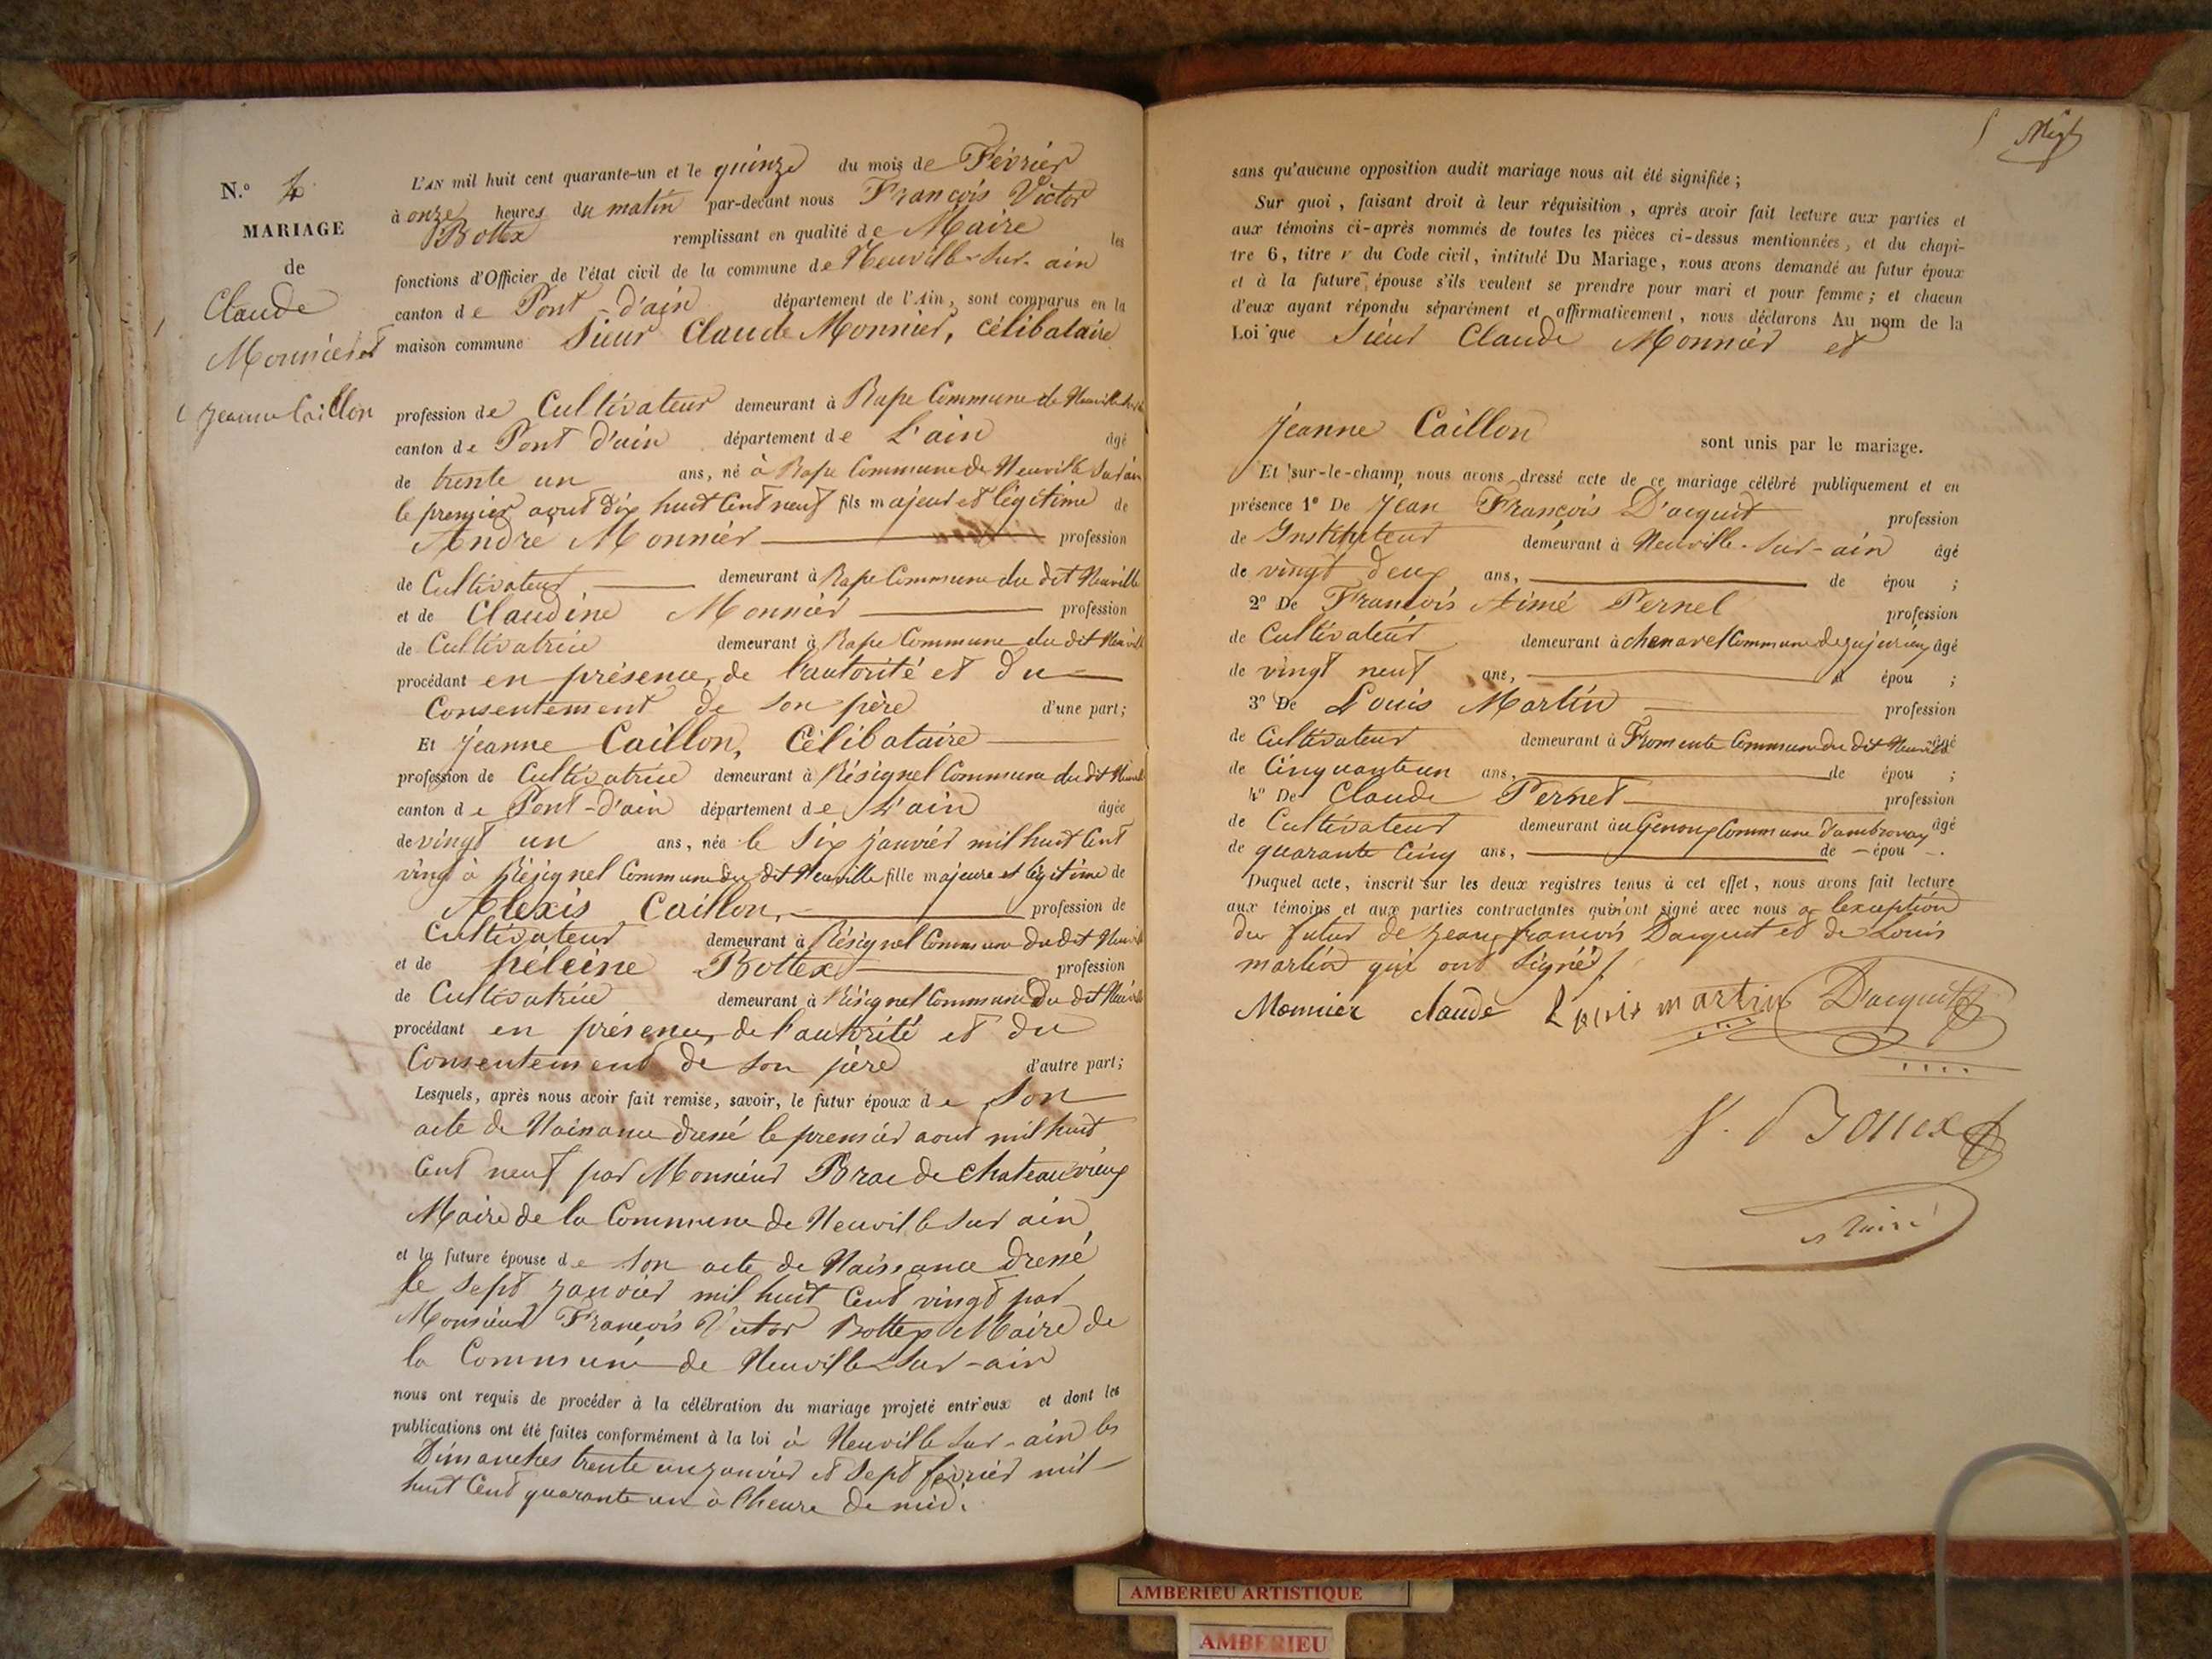 N.º 4
MARIAGE
de
Claude
Monnier et
Jeanne Caillon
L'AN mil huit cent quarante-un et le quinze du mois de Février
à onze heures du matin par-devant nous François Victor
Bottex remplissant en qualité de Maire les
fonctions d'Officier de l'état civil de la commune de Neuville-sur-ain
canton de Pont-d'ain département de l'Ain, sont comparus en la
maison commune Sieur Claude Monnier, célibataire
profession de Cultivateur demeurant à Rape Commune de Neuville
canton de Pont d'ain département de L'ain âgé
de trente un ans, né à Rape Commune de Neuville Sur ain
le premier aout dix huit Cent neuf fils majeur et légitime de
André Monnier profession
de Cultivateur demeurant à Rape Commune du dit Neuville
et de Claudine Monnier profession
de Cultivatrice demeurant à Rape Commune du dit Neuville
procédant en présence, de l'autorité et du
Consentement de son père d'une part;
Et Jeanne Caillon, Célibataire
profession de Cultivatrice demeurant à Résignel Commune du dit Neuville
canton de Pont-d'ain département de L'ain âgée
de vingt un ans, née le Six janvier mil huit Cent
vingt à Résignel Commune du dit Neuville fille majeure et légitime de
Alexis Caillon, profession de
Cultivateur demeurant à Résignel Commune du dit Neuville
et de héleine Bottex profession
de Cultivatrice demeurant à Résignel Commune Du dit Neuville
procédant en présence, de l'autorité et du
Consentement de son père d'autre part;
Lesquels, après nous avoir fait remise, savoir, le futur époux de Son
acte de Naissance dressé le premier aout mil huit
Cent neuf par Monsieur Brac de Chateauvieux
Maire de la Commune de Neuville Sur ain
et la future épouse de Son acte de Naissance dressé
le Sept janvier mil huit Cent vingt par
Monsieur François Victor Bottex Maire de
la Commune de Neuville-Sur-ain
nous ont requis de procéder à la célébration du mariage projeté entr'eux et dont les
publications ont été faites conformément à la loi à Neuville Sur-ain les
Dimanches trente un janvier et Sept février mil
huit Cent quarante un à l'heure de midi.
sans qu'aucune opposition audit mariage nous ait été signifiée;
Sur quoi, faisant droit à leur réquisition, après avoir fait lecture aux parties et
aux témoins ci-après nommés de toutes les pièces ci-dessus mentionnées, et du chapi-
tre 6, titre v du Code civil, intitulé Du Mariage, nous avons demandé au futur époux
et à la future épouse s'ils veulent se prendre pour mari et pour femme; et chacun
d'eux ayant répondu séparément et affirmativement, nous déclarons Au nom de la
Loi que Sieur Claude Monnier et
Jeanne Caillon sont unis par le mariage.
Et sur-le-champ nous avons dressé acte de ce mariage célébré publiquement et en
présence 1º De Jean François D'acquit profession
de Instituteur demeurant à Neuville-Sur-ain âgé
de vingt deux ans, de épou ;
2º De François Aimé Pernet profession
de Cultivateur demeurant à chenavel Commune de jujurieux âgé
de vingt neuf ans, épou ;
3º De Louis Martin profession
de Cultivateur demeurant à Fromente Commune du dit Neuville âgé
de Cinquante un ans, de épou ;
4º De Claude Pernet profession
de Cultivateur demeurant au Genoux Commune d'ambronay âgé
de quarante Cinq ans, de épou .
Duquel acte, inscrit sur les deux registres tenus à cet effet, nous avons fait lecture
aux témoins et aux parties contractantes qui n'ont signé avec nous a lexception
du futur de Jean françois Dacquit et de Louis
martin qui ont Signé
Monnier claude Louis martin D'acquit
V. Bottex
Maire
AMBERIEU ARTISTIQUE
AMBERIEU